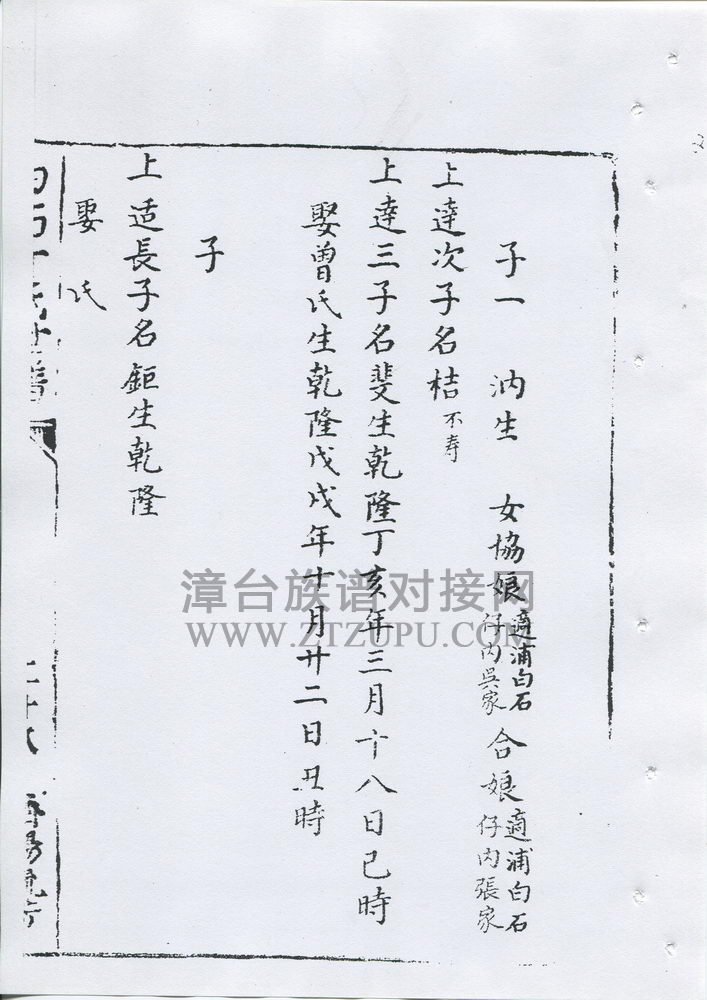 子一 汭生 女協娘適浦白石仔內吳家 合娘適浦白石仔內張家
上達次子名桔不寿
上達三子名斐生乾隆丁亥年三月十八日巳時
娶曾氏生乾隆戊戌年十月廿二日丑時
子
上适長子名鉅生乾隆
娶 氏
漳台族谱对接网
WWW.ZTZUPU.COM